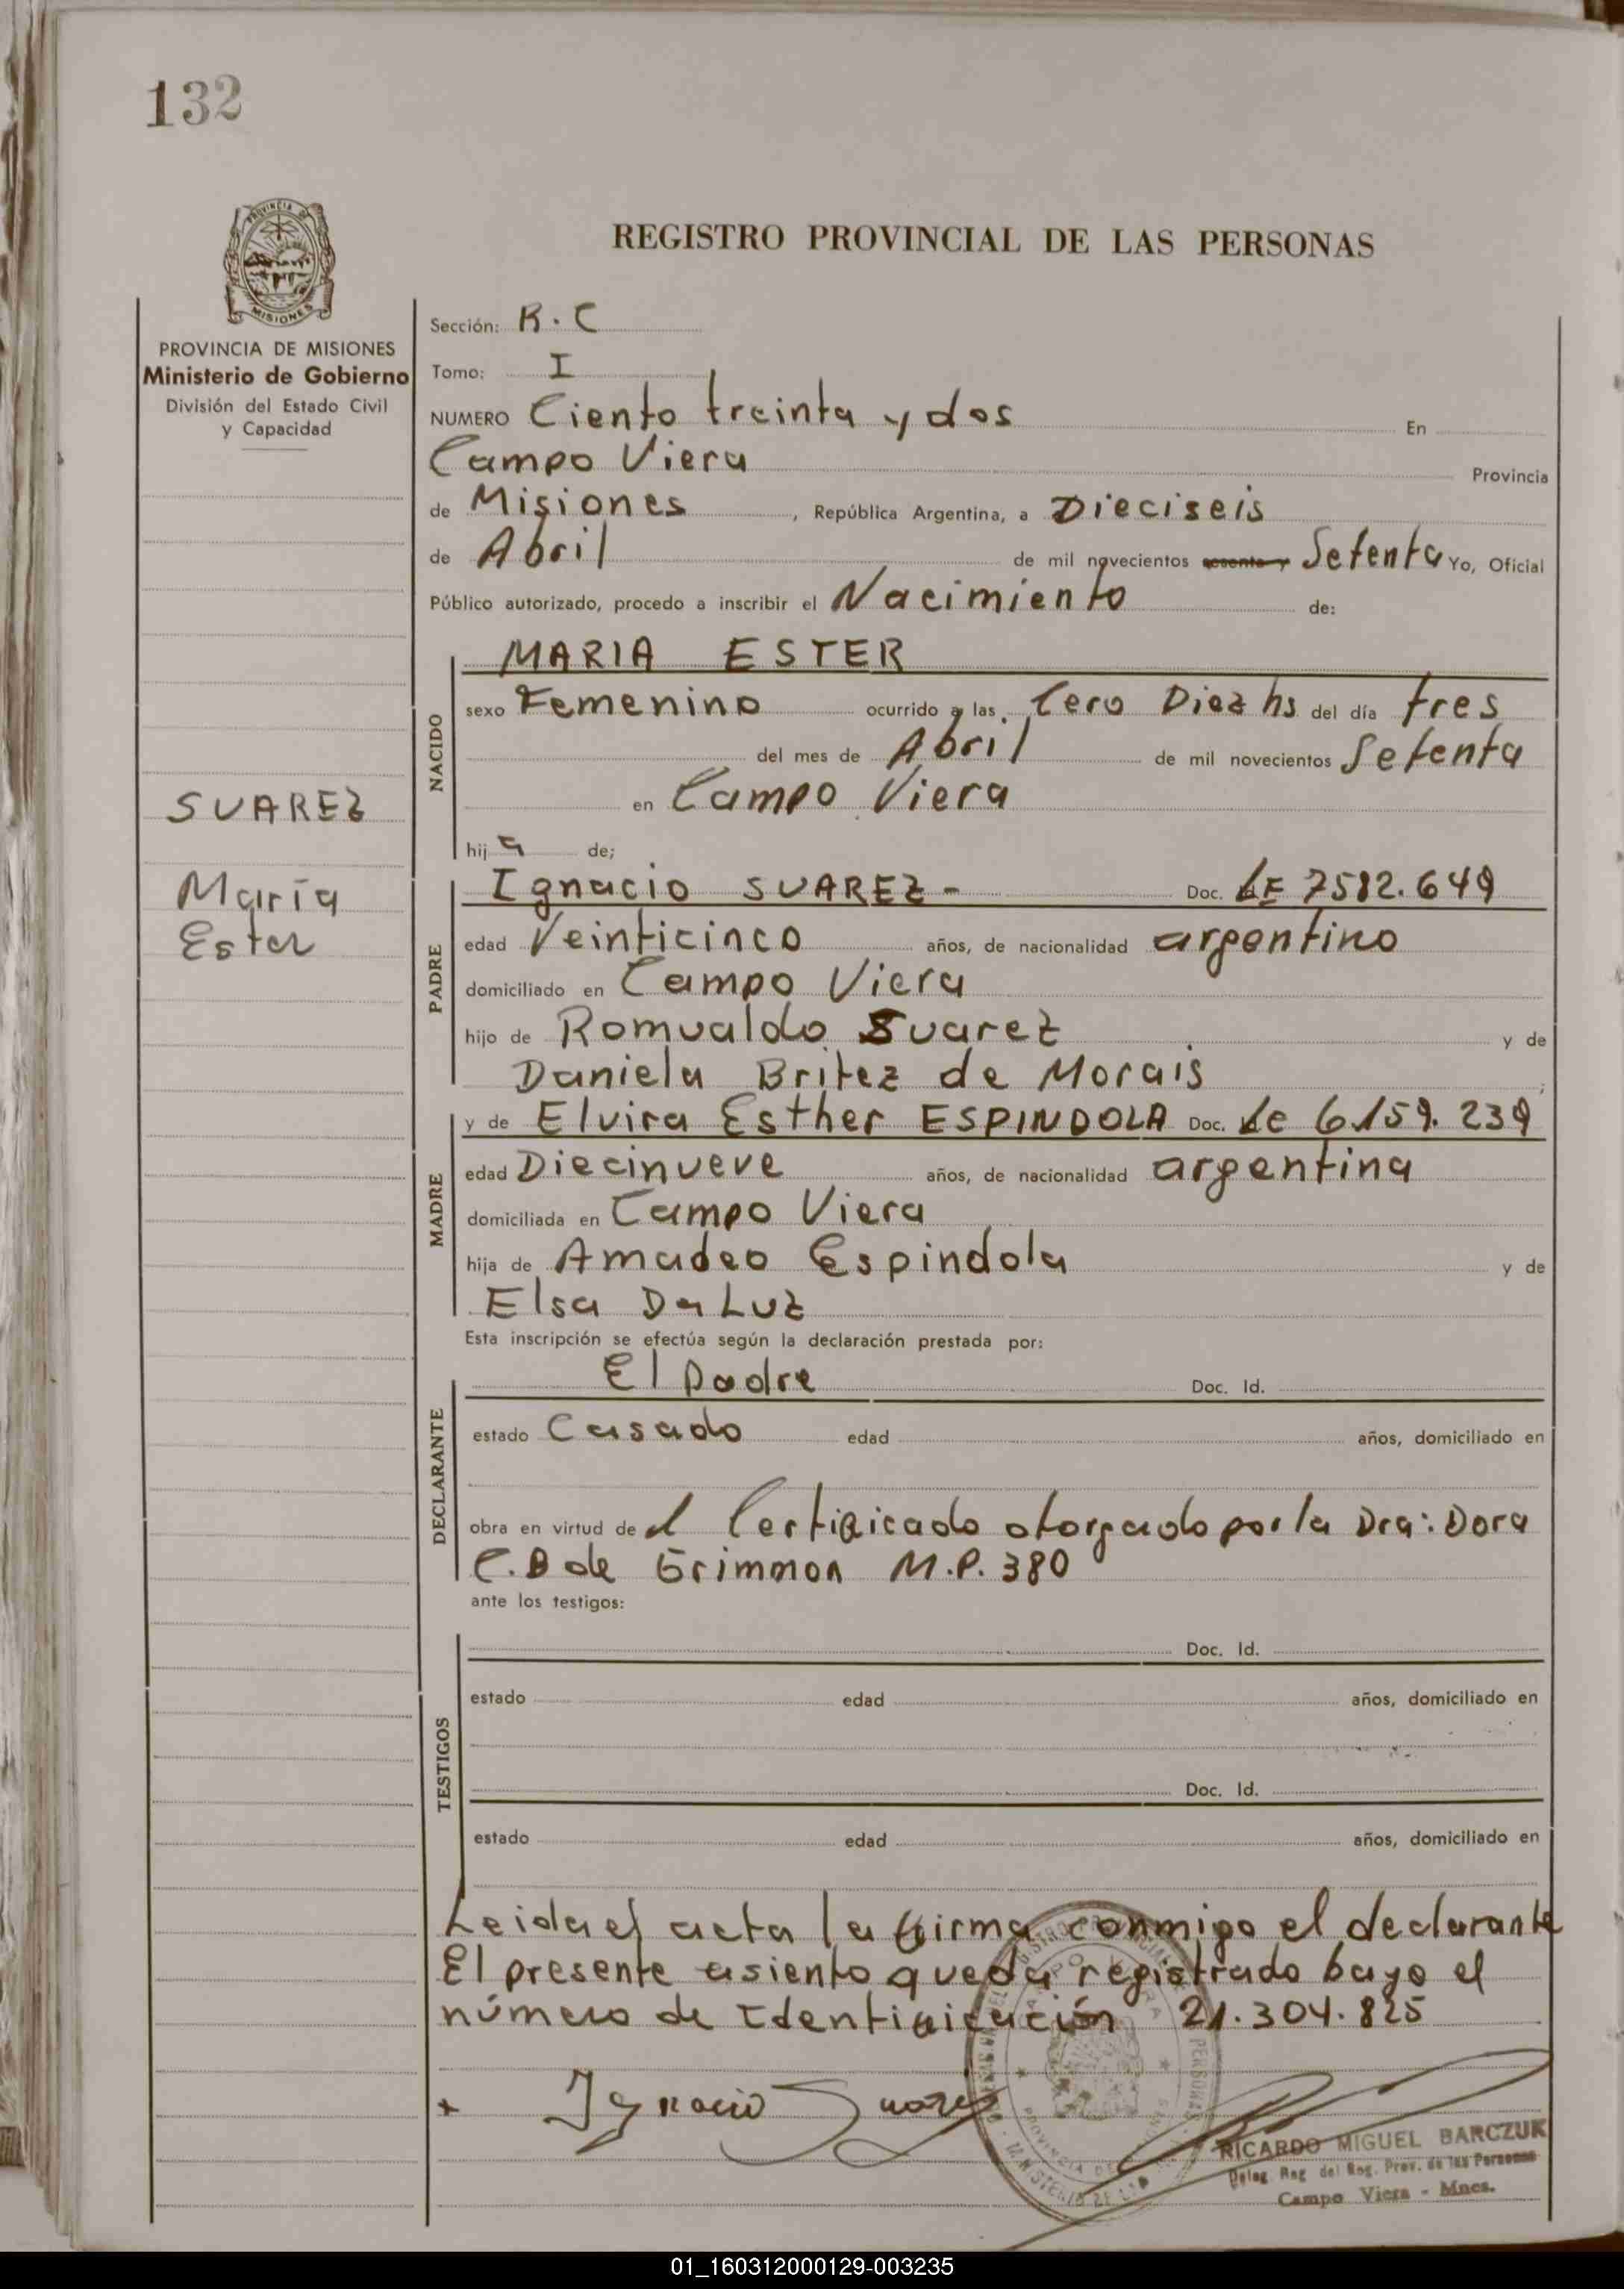 132
REGISTRO PROVINCIAL DE LAS PERSONAS
MISIONES
PROVINCIA DE MISIONES
Ministerio de Gobierno
División del Estado Civil
y Capacidad
SUAREZ
María
Ester
Sección: R.C
Tomo: I
NUMERO Ciento treinta y dos En
Campo Viera Provincia
de Misiones, República Argentina, a Dieciseis
de Abril de mil novecientos sesenta y Setenta Yo, Oficial
Público autorizado, procedo a inscribir el Nacimiento de:
NACIDO
MARIA ESTER
sexo Femenino ocurrido a las Cero Diez hs del día tres
del mes de Abril de mil novecientos Setenta
en Campo Viera
hija de;
PADRE
Ignacio SUAREZ - Doc. LE 7582.649
edad Veinticinco años, de nacionalidad argentino
domiciliado en Campo Viera
hijo de Romualdo Suarez y de
Daniela Britez de Morais;
MADRE
y de Elvira Esther ESPINDOLA Doc. Lc 6.159.239
edad Diecinueve años, de nacionalidad argentina
domiciliada en Campo Viera
hija de Amadeo Espindola y de
Elsa Da Luz
Esta inscripción se efectúa según la declaración prestada por:
DECLARANTE
El Padre Doc. Id.
estado Casado edad años, domiciliado en
obra en virtud del Certificado otorgado por la Dra: Dora
C.B de Grimmon M.P. 380
ante los testigos:
TESTIGOS
Doc. Id.
estado edad años, domiciliado en
Doc. Id.
estado edad años, domiciliado en
Leida el acta la firma conmigo el declarante
El presente asiento queda registrado bayo el
número de Identificación 21.304.825
+ Ignacio Suarez
RICARDO MIGUEL BARCZUK
Deleg. Reg. del Reg. Prov. de las Personas
Campo Viera - Mnes.
01_160312000129-003235